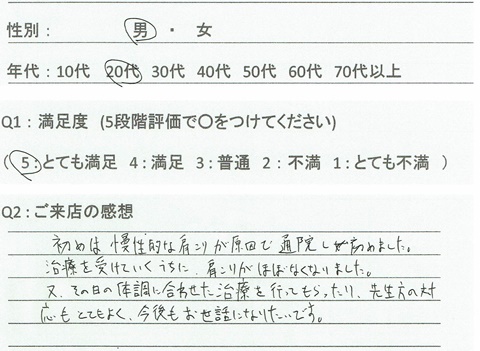 性別： 男 ・ 女
年代：10代 20代 30代 40代 50代 60代 70代以上
Q1：満足度 (5段階評価で〇をつけてください)
( 5：とても満足 4：満足 3：普通 2：不満 1：とても不満 )
Q2：ご来店の感想
初めは慢性的な肩こりが原因で通院し始めました。
治療を受けていくうちに、肩こりがほぼなくなりました。
又、その日の体調に合わせた治療を行ってもらったり、先生方の対
応もとてもよく、今後もお世話になりたいです。